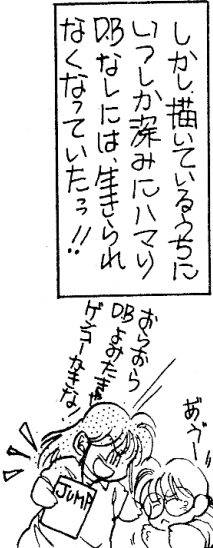 しかし、描いているうちに
いつしか深みにハマり
DBなしには、生きられ
なくなっていたっ!!
おらおら
DBよみたきゃ
ゲンコーかきな!
あうー
JUMP